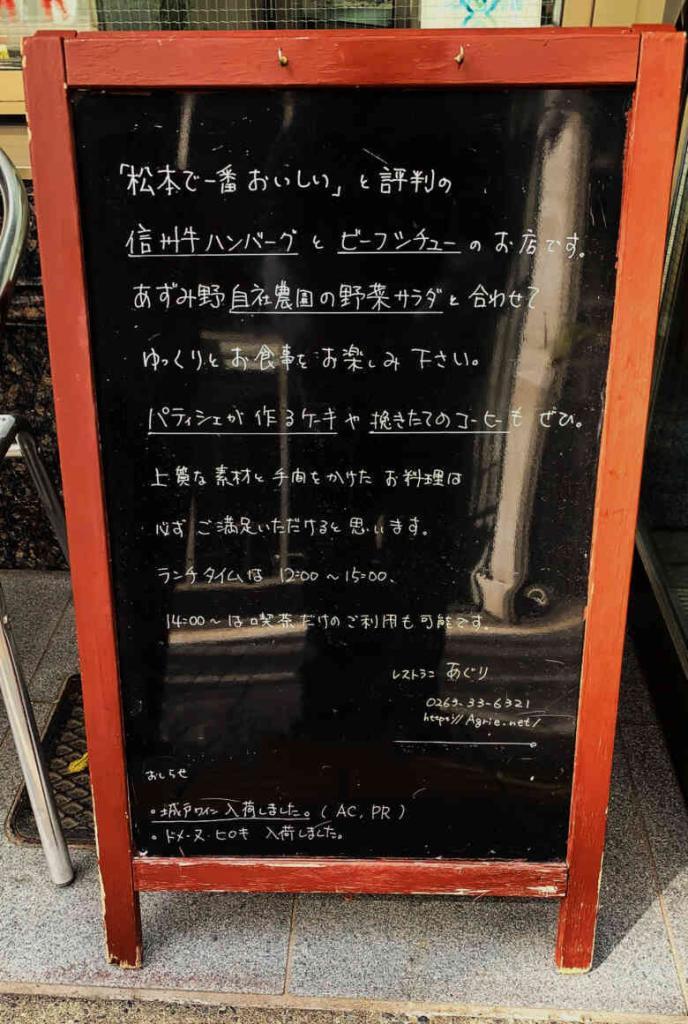 「松本で一番おいしい」と評判の
信州牛ハンバーグとビーフシチューのお店です。
あずみ野自社農園の野菜サラダと合わせて
ゆっくりとお食事をお楽しみ下さい。
パティシエが作るケーキや挽きたてのコーヒーもぜひ。
上質な素材と手間をかけたお料理は
必ずご満足いただけると思います。
ランチタイムは 12:00～15:00、
14:00～は喫茶だけのご利用も可能です。
レストラン あぐり
0263-33-6321
https://Agrie.net/
おしらせ
・城戸ワイン入荷しました。(AC, PR)
・ドメーヌ・ヒロキ 入荷しました。